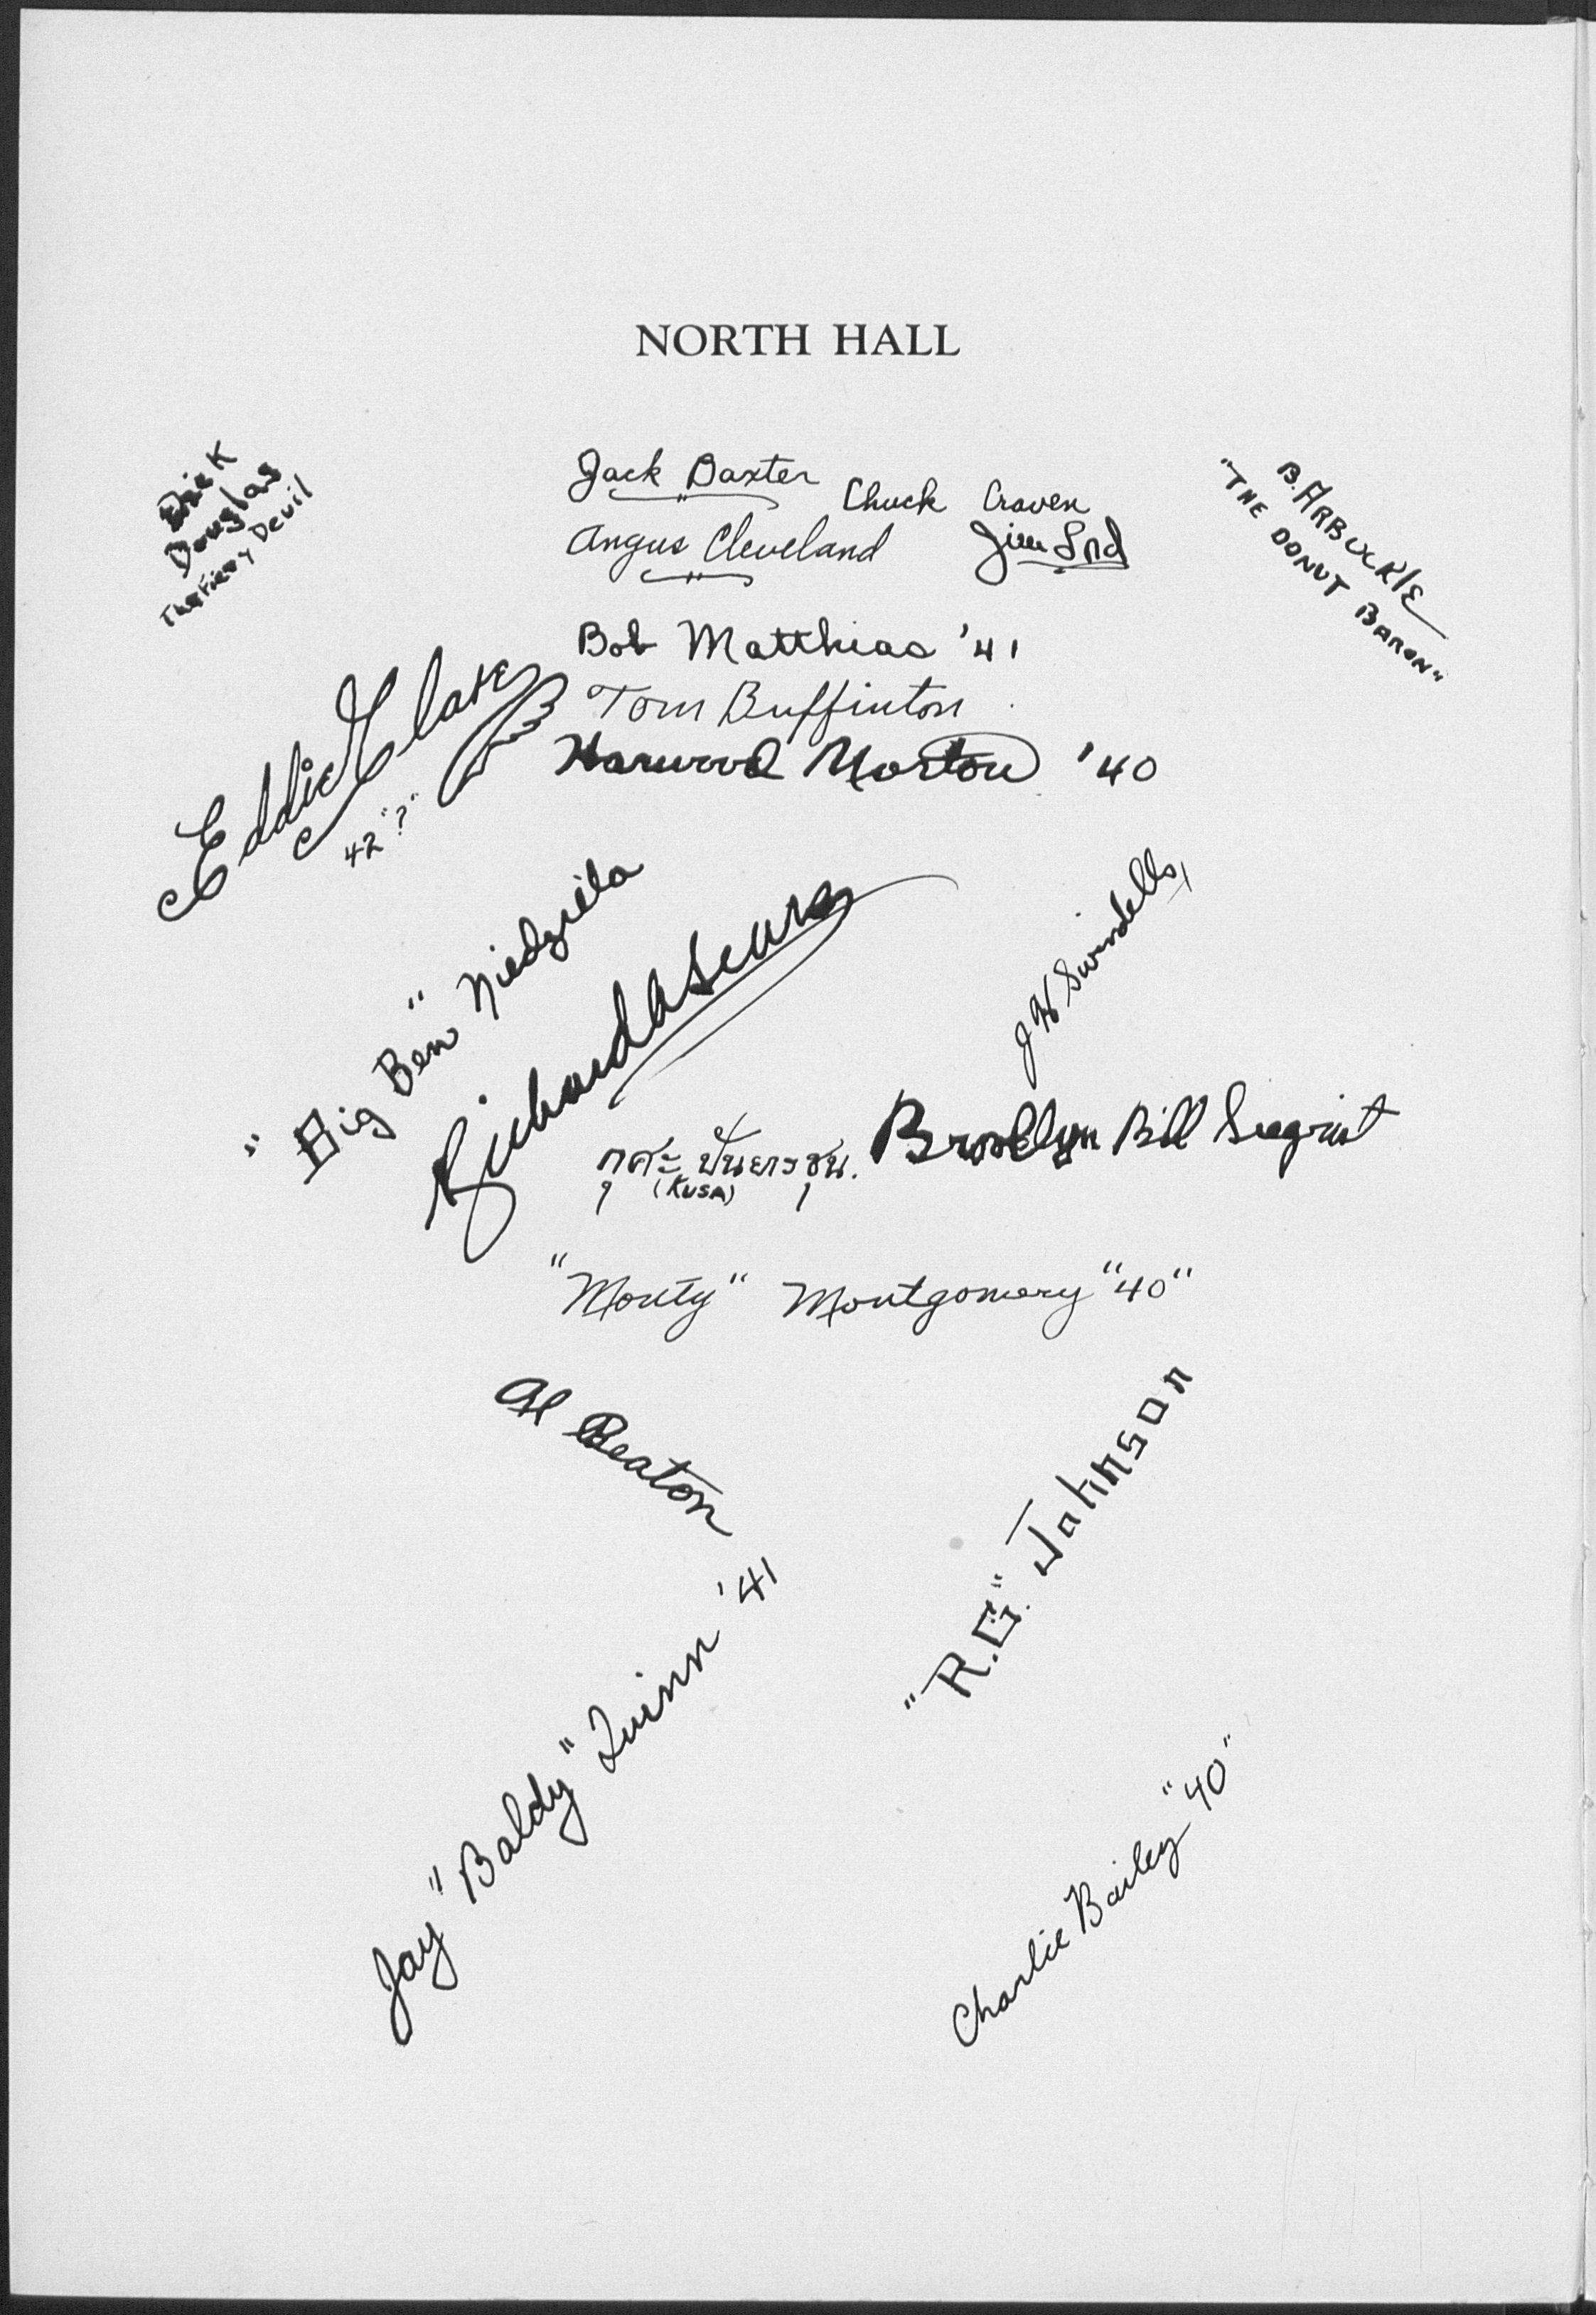 NORTH HALL
Dick
Douglas
The Fiery Devil
Jack Baxter
Chuck Craven
Angus Cleveland
Jim Lord
B. ARBUCKLE
"THE DONUT BARON"
Bob Matthias '41
Tom Buffinton
Harwood Morton '40
Eddie Clark
42 "?"
"Big Ben" Niedziela
Richard A Sears
J H Swindells,
(KUSA)
Brooklyn Bill Seegrist
"Monty" Montgomery "40"
Al Beaton
"R.G." Johnson
Jay "Baldy" Quinn '41
Charlie Bailey "40"